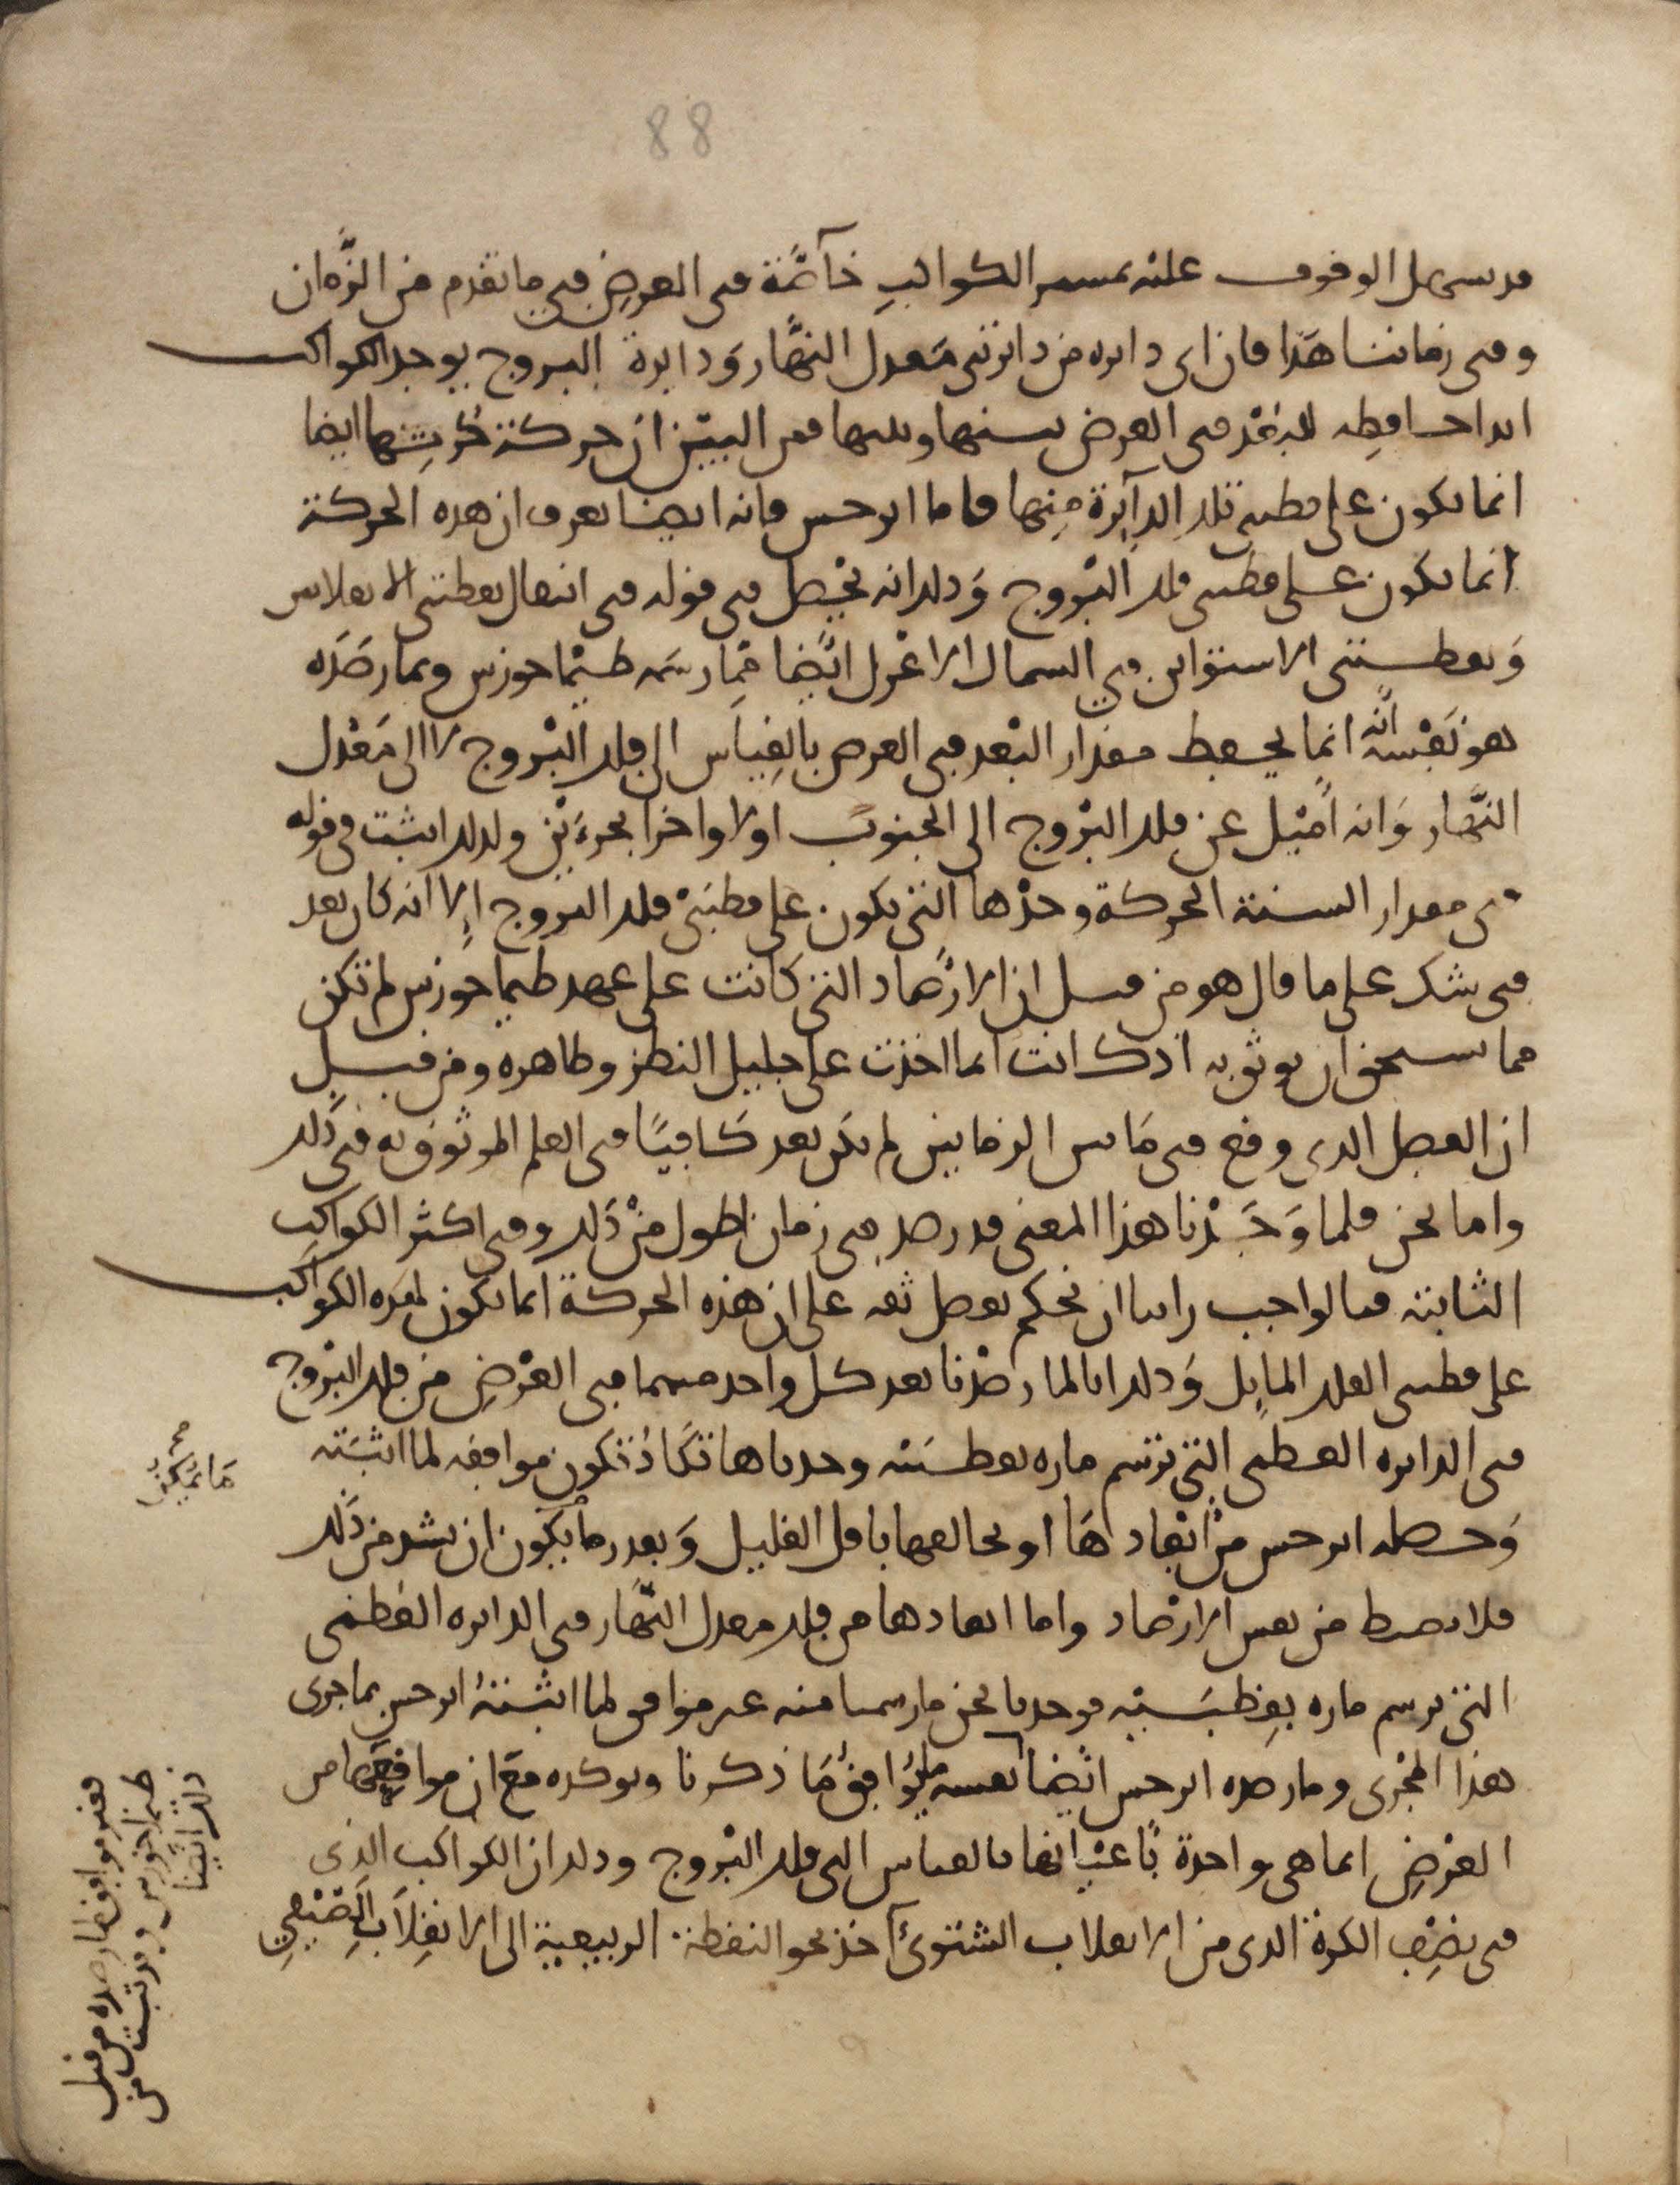 88
قد يسهل الوقوف عليه بمسير الكواكب خاصّة في العرض في ما تقدم من الزّمان
وفي زماننا هذا فان اى دائره من دائرتي معدل النهّار ودايرة البروج يوجد الكواكب
ابدا حافظه للبُعْد في العرض بينها وبينها فمن البيّن ان حركة كُرتِها ايضا
انما تكون على قطبي تلك الدآيرة منِها فاما ابرخس فانه ايضا يعرف ان هذه الحركة
انما تكون على قطبي فلك البُروج وَذلك انه يحصل في قوله في انتقال نقطتي الانقلابين
وَنقطتي الاستوايين في السماك الاعزل ايضًا مِمّا رسَمه طيماخورس وبما رصَده
هو نَفسه انه انما يحفظ مقدار البُعد في العرض بالقِياَس الى فلك البُروج لا الى مَعْدل
النهّار وَانه اَميْل عن فلك البُروج الى الجنوب اولا واخرا بجزءَيْن ولذلك اثبت في قوله
في مقدار السنة الحركة وحدْها التي تكون على قطبَيْ فلك البروج اِلا انه كان بعد
في شك على ما قال هو من قبل ان الارْصَاد التي كانت على عهد طيماخورس لم تكن
مما يستحق ان يوثق به اذ كانت انما اخذت على جليل النظر وظاهره ومن قبل
ان الفصل الذي وقع في مَا بين الزمانيين لم يكن بعد كَافيًا في العلم الموثوق به في ذَلك
واما نحن فلما وَجَدْنا هذا المعنى قد رصد في زمان اطول منْ ذَلك وفي اكثر الكواكب
الثابته فبالواجب راينا ان نحكم بفصل ثقه على ان هذه الحركة انما تكون لهَذه الكواكب
على قطبي الفلك المايل وَذلك انا لما رصدْنا بعد كل واحد منهما في العَرْضِ من فلك البُروج
في الدايره العظمى التي ترتسم ماره بقطبَيه وجدناها تكَادُ تكون موافقه لما اثبَته
وَحصله ابرخس منْ ابعادهَا او يخالفها باقل القليل وَبقدر ما يكون ان يشد من ذَلك
فلا يضبط من نفس الارْصَاد واما ابعادها من فلك معدل النهّار في الدايره العُظمى
التي ترسم ماره بِقطبَيه فوجدنا نحن ما رسمنا منه غير موافق لما اثبتهُ ابرخس بما جرى
هذا المجْرى وما رصده ابرخس ايضًا نفسه يُوافقُ مَا ذكرنا ويوكده مَع ان موافقتها من
العَرْضِ انما هي واحدة بًاعيْانها بالقياس الى فلك البُروج وذلك ان الكواكب الذي
في نصْفِ الكرة الذي من الانقلاب الشتويّ آخذ نحو النقطة الربيعية الى الانقِلاَبِ الصّيْفي
مَا يمكن
فغير موافق لما رصده من قبل
طيماخورس وقد تبيّن من
ذلك ايضا